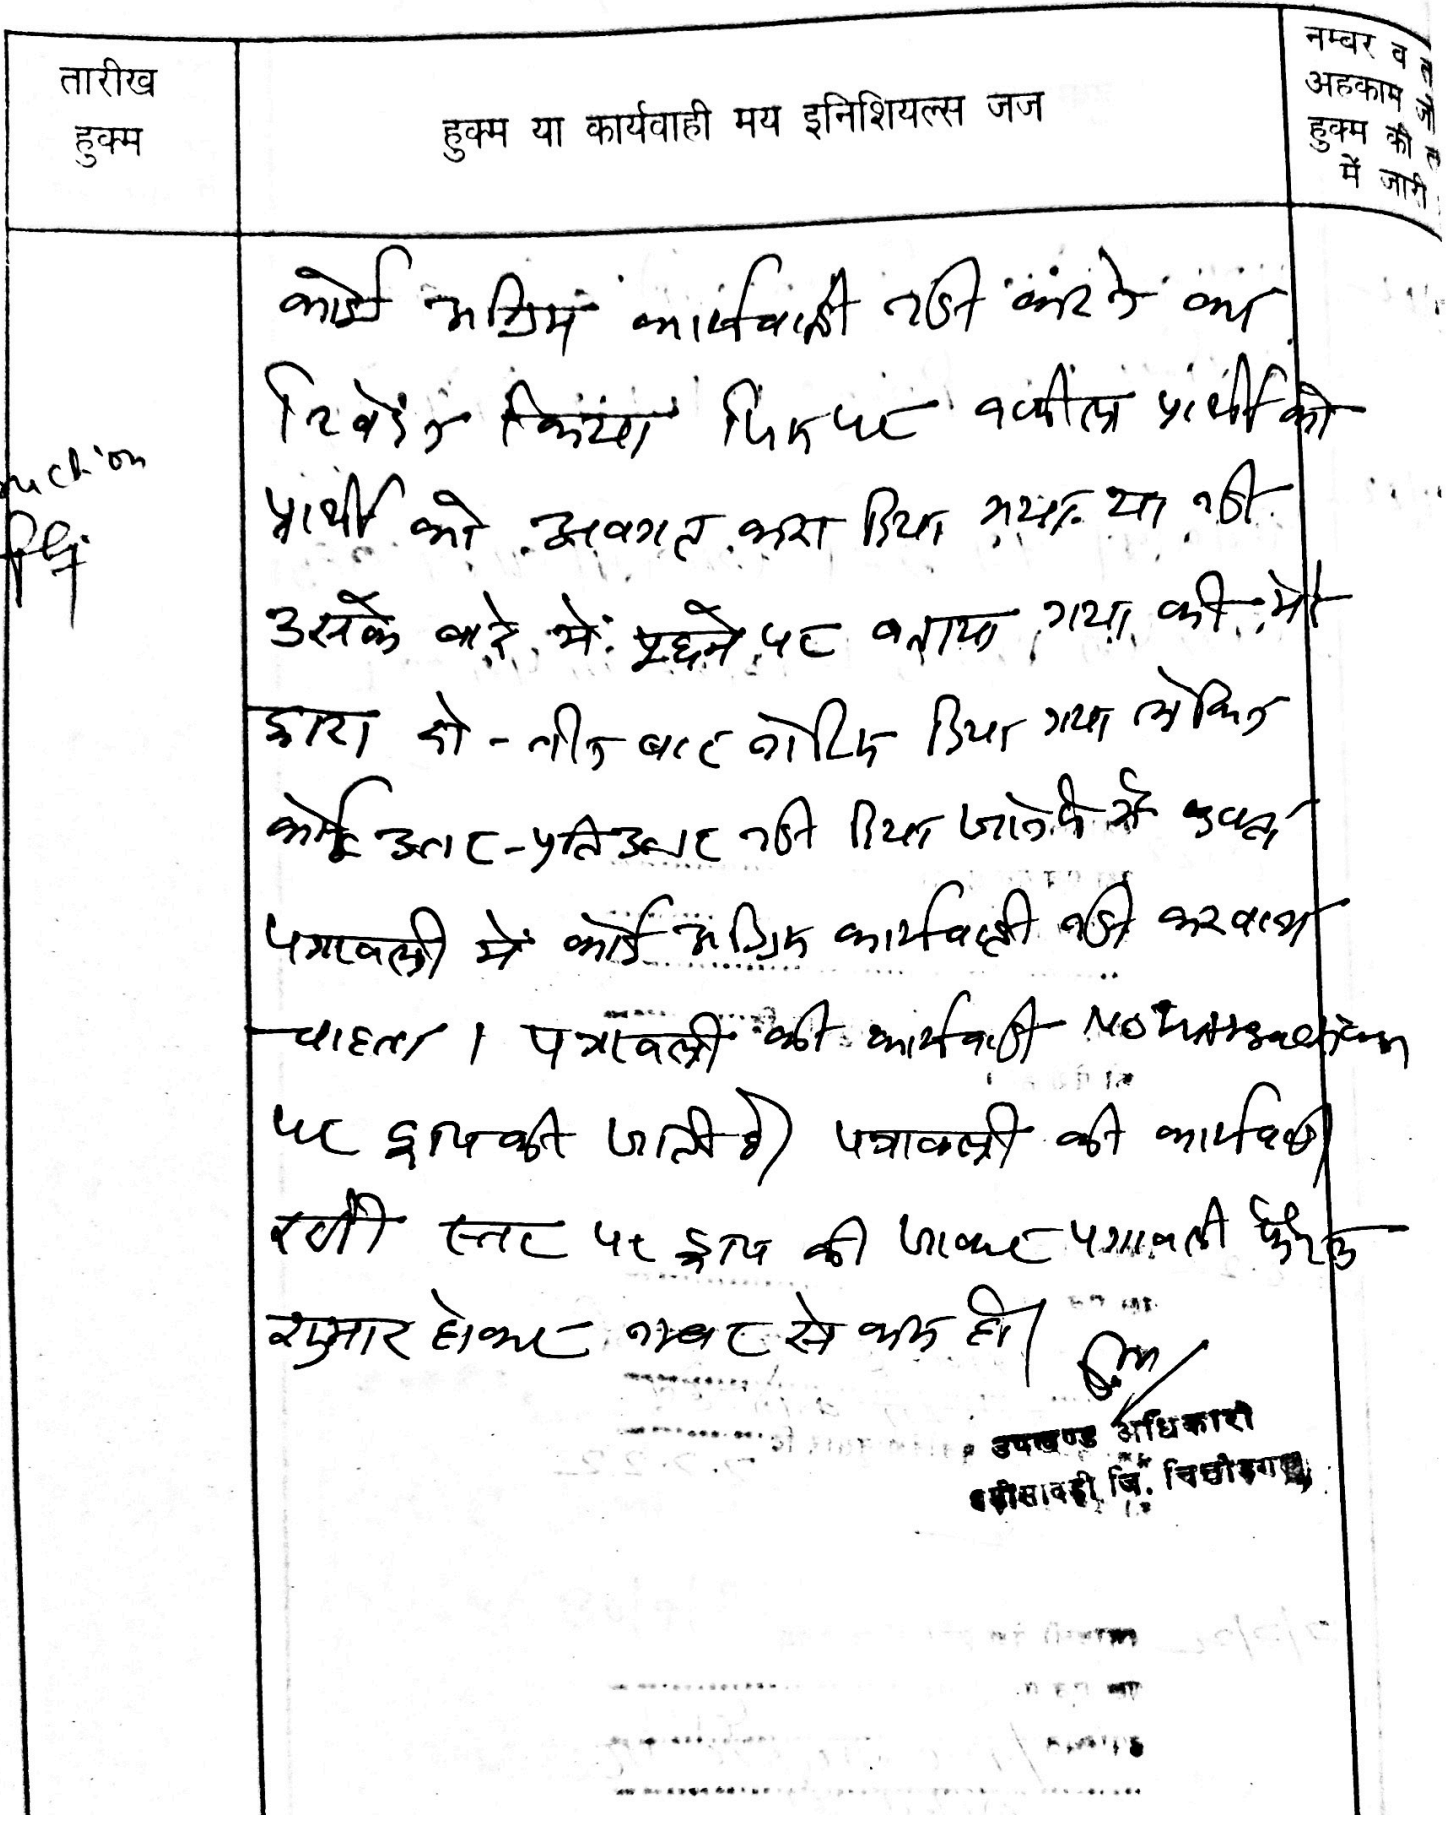 तारीख
हुक्म
हुक्म या कार्यवाही मय इनिशियल्स जज
नम्बर व
अहकाम जो
हुक्म की
में जारी
कोई अग्रिम कार्यवाही नही करने का
निवेदन किया जिस पर वकील प्रार्थी को
प्रार्थी को अवगत करा दिया गया या नही
उसके बारे में पूछने पर बताया गया की मेरे
द्वारा दो-तीन बार नोटिस दिया गया लेकिन
कोई उत्तर-प्रतिउत्तर नही दिया जाने से
पत्रावली में कोई अग्रिम कार्यवाही नही करवाना
चाहता। पत्रावली की कार्यवाही No
पर ड्राप की जाती है। पत्रावली की कार्यवाही
इसी स्तर पर ड्राप की जाकर पत्रावली फैसल
शुमार होकर नम्बर से कम हो।
उपखण्ड अधिकारी
जि. चित्तौड़गढ़
uction